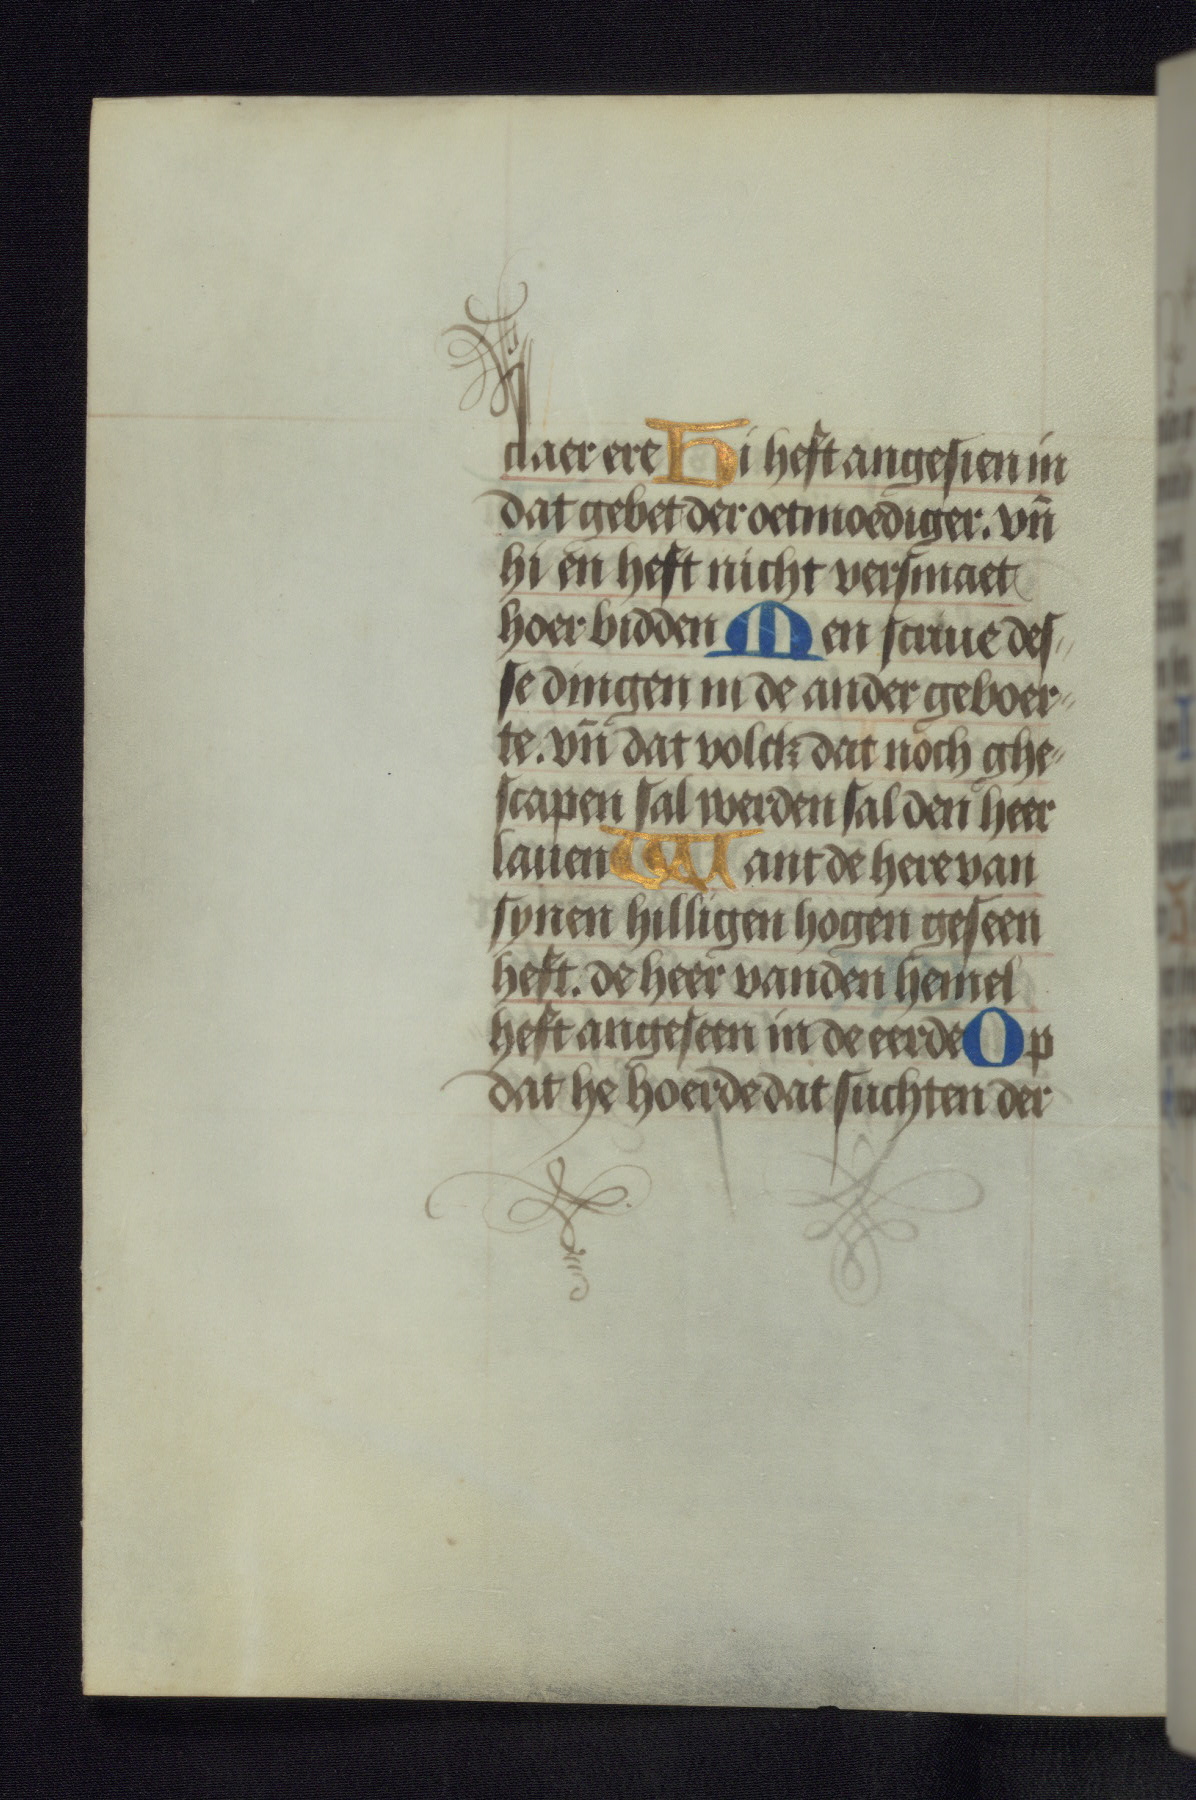 claer ere Hi heft angesien in
dat gebet der oetmoediger. vn̄
hi en heft nicht versmaet
hoer bidden Men scriue des-
se dingen in de ander geboer-
te. vn̄ dat volck dat noch ghe-
scapen sal werden sal den heer
lauen Want de here van
synen hilligen hogen geseen
heft. de heer vanden hemel
heft angeseen in de eerde Op
dat he hoerde dat suchten der